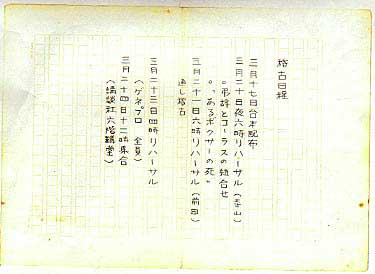 稽古日程
三月十七日台本配布
三月二十日夜六時リハーサル（青山）
。弔辞とコーラスの組合せ
。〝あるボクサーの死〟
三月二十一日六時リハーサル（前田）
通し稽古
三月二十三日四時リハーサル
（ゲネプロ　全員）
三月二十四日十二時集合
（講談社六階講堂）